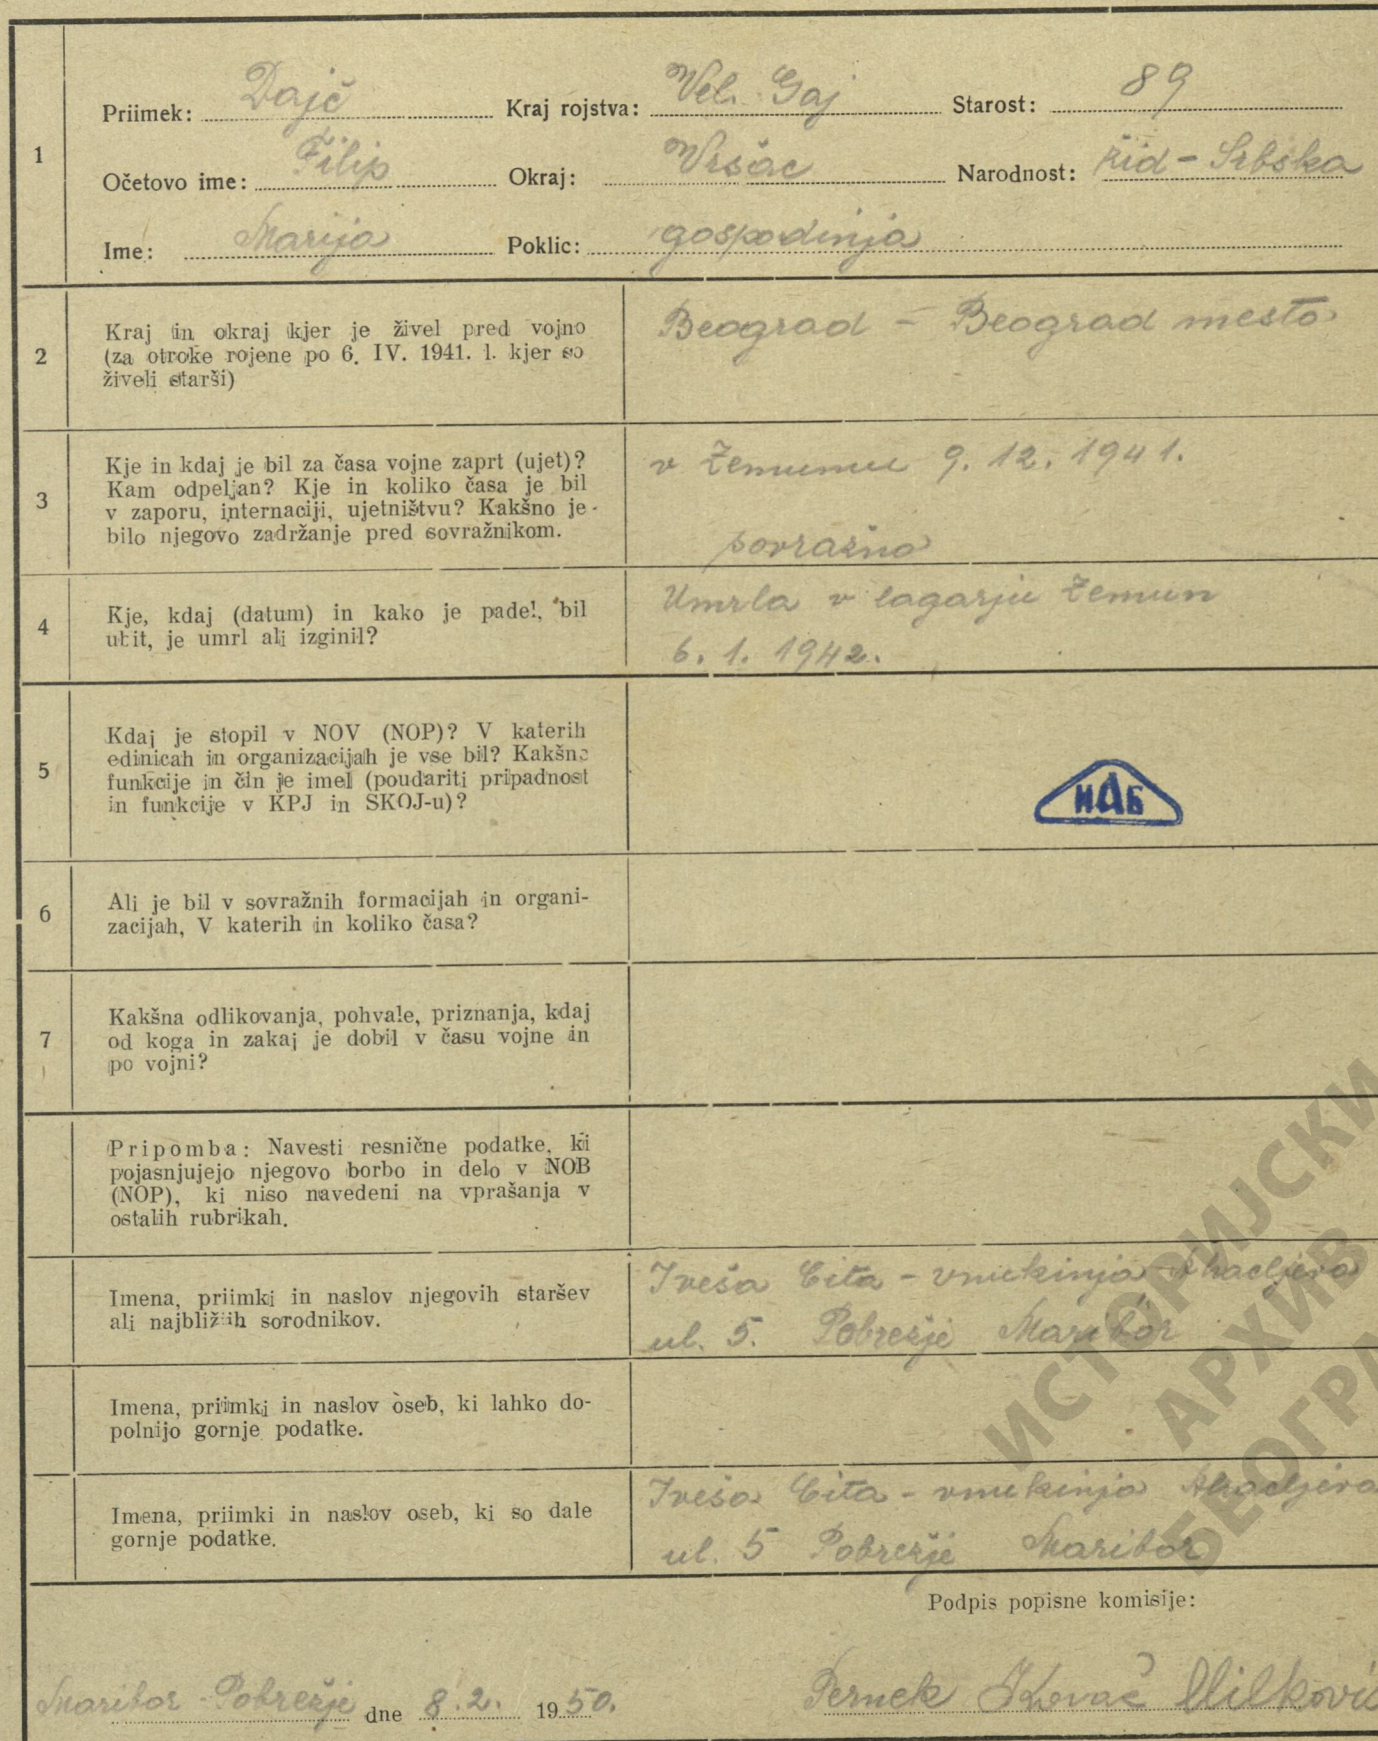 1
Priimek: Dajč Kraj rojstva: Vel. Gaj Starost: 89
Očetovo ime: Filip Okraj: Vršac Narodnost: žid - Srbska
Ime: Marija Poklic: gospodinja
2
Kraj in okraj kjer je živel pred vojno
(za otroke rojene po 6. IV. 1941. l. kjer so
živeli starši)
Beograd - Beograd mesto
3
Kje in kdaj je bil za časa vojne zaprt (ujet)?
Kam odpeljan? Kje in koliko časa je bil
v zaporu, internaciji, ujetništvu? Kakšno je
bilo njegovo zadržanje pred sovražnikom.
v Zemunu 9. 12. 1941.
sovražno
4
Kje, kdaj (datum) in kako je padel, bil
ubit, je umrl ali izginil?
Umrla v lagarju Zemun
6. 1. 1942.
5
Kdaj je stopil v NOV (NOP)? V katerih
edinicah in organizacijah je vse bil? Kakšne
funkcije in čin je imel (poudariti pripadnost
in funkcije v KPJ in SKOJ-u)?
ИАБ
6
Ali je bil v sovražnih formacijah in organi-
zacijah, V katerih in koliko časa?
7
Kakšna odlikovanja, pohvale, priznanja, kdaj
od koga in zakaj je dobil v času vojne in
po vojni?
Pripomba: Navesti resnične podatke, ki
pojasnjujejo njegovo borbo in delo v NOB
(NOP), ki niso navedeni na vprašanja v
ostalih rubrikah.
Imena, priimki in naslov njegovih staršev
ali najbližjih sorodnikov.
Iveša Cita - vnukinja
ul. 5. Pobrežje Maribor
Imena, priimki in naslov oseb, ki lahko do-
polnijo gornje podatke.
Imena, priimki in naslov oseb, ki so dale
gornje podatke.
Iveša Cita - vnukinja
ul. 5 Pobrežje Maribor
Podpis popisne komisije:
Maribor - Pobrežje dne 8. 2. 1950.
Pernek Kovač Milković
ИСТОРИЈСКИ
АРХИВ
БЕОГРА